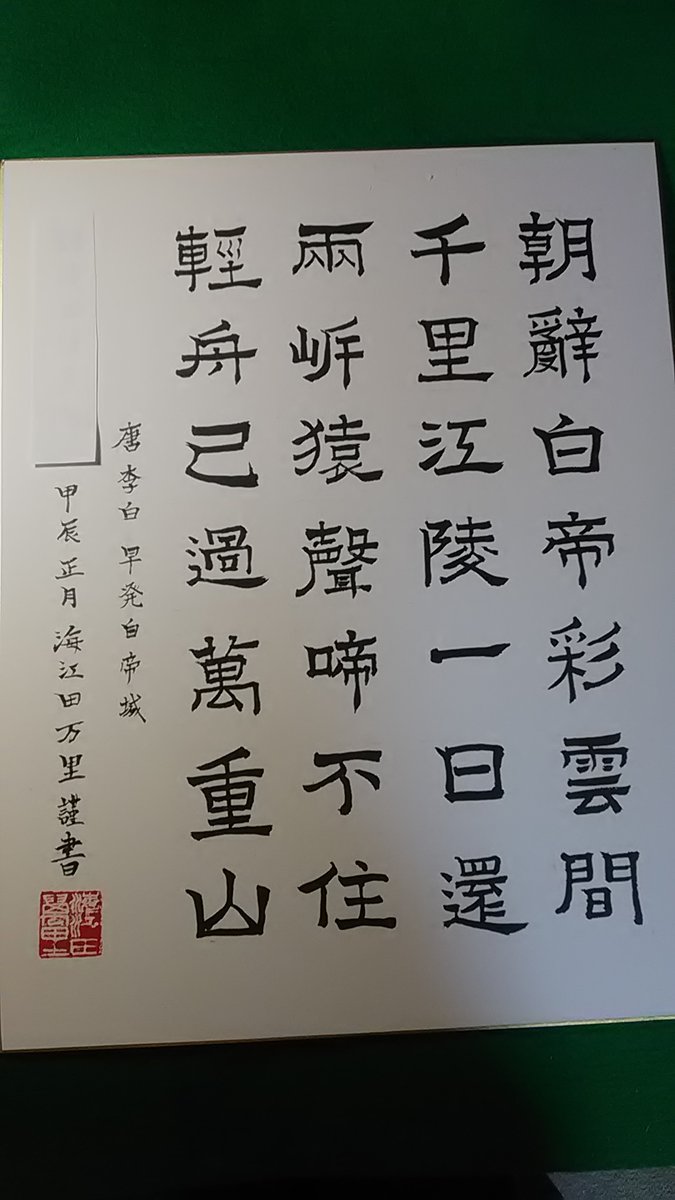 朝辭白帝彩雲間
千里江陵一日還
兩岸猿聲啼不住
輕舟己過萬重山
唐李白 早発白帝城
甲辰正月 海江田万里 謹書